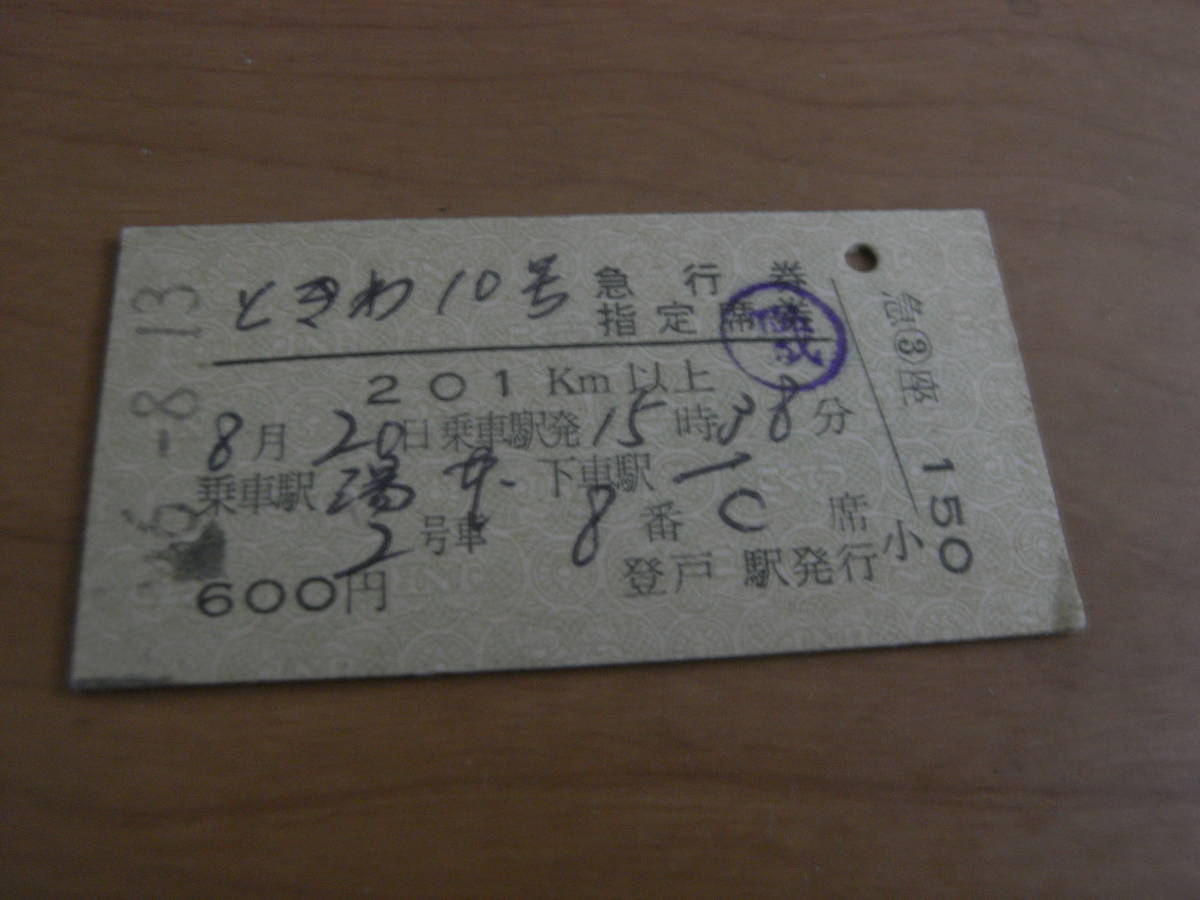 ときわ10号 急行券
指定席券
201Km以上
8月20日乗車駅発15時38分
乗車駅 湯本 下車駅 ―
2号車 8番C席
600円 登戸駅発行
-8-13
急③座
小150